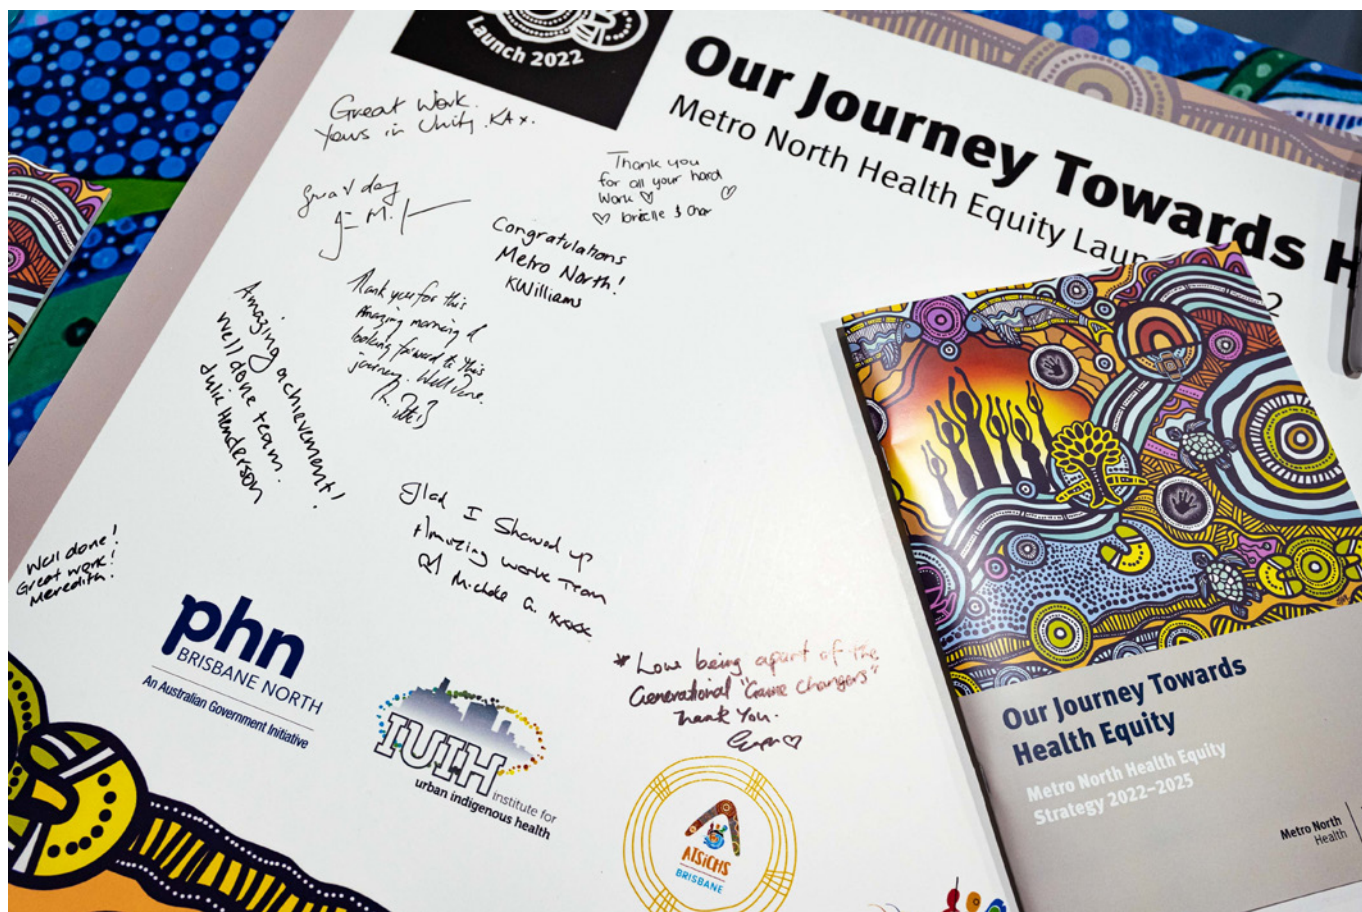 Launch 2022
Our Journey Towards H
Metro North Health Equity Laun
2
Great Work.
Yours in Unity. KA x.
Thank you
for all your hard
work ♡ ♡
♡ & Char
Great day
Congratulations
Metro North!
KWilliams
Thank you for this
Amazing morning &
looking forward to this
journey. Well Done.
Amazing achievement!
Well done team.
Julie Henderson
Glad I Showed up
Amazing work Team
Michele G. xxxx
Well done!
Great work!
Meredith!
* Love being apart of the
Generational "Game Changers"
Thank You.
phn
BRISBANE NORTH
An Australian Government Initiative
IUIH
institute for
urban indigenous health
ATSICHS
BRISBANE
Our Journey Towards
Health Equity
Metro North Health Equity
Strategy 2022–2025
Metro North
Health